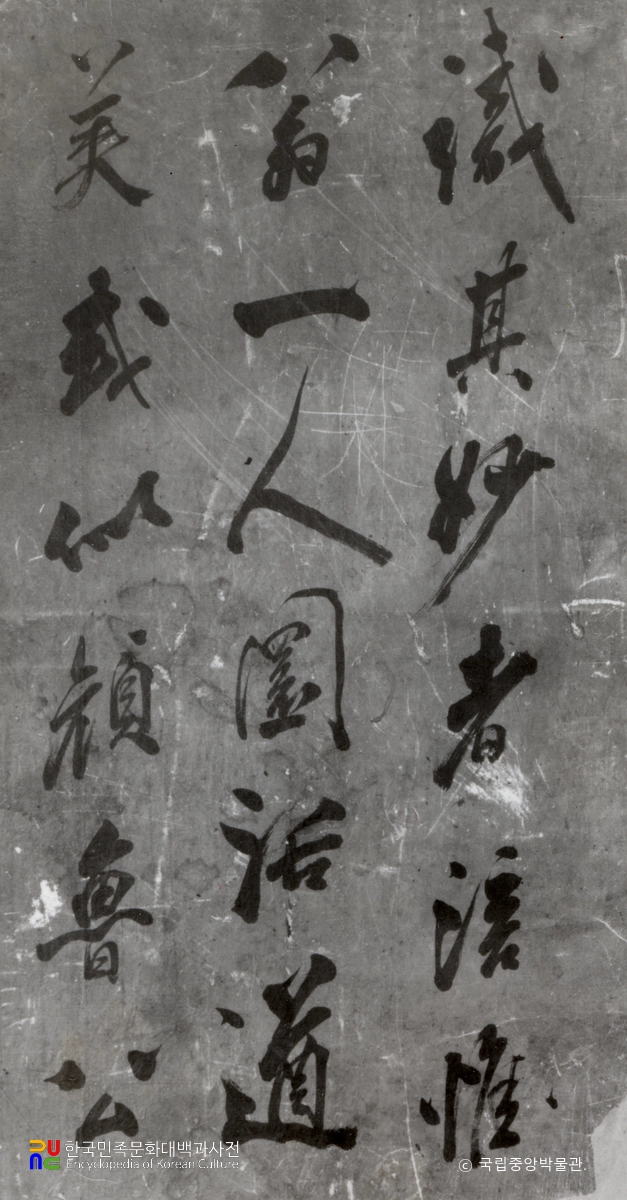 識其妙者涪惟
翁一人圓活遒
美或似顔魯公
한국민족문화대백과사전
Encyclopedia of Korean Culture
© 국립중앙박물관